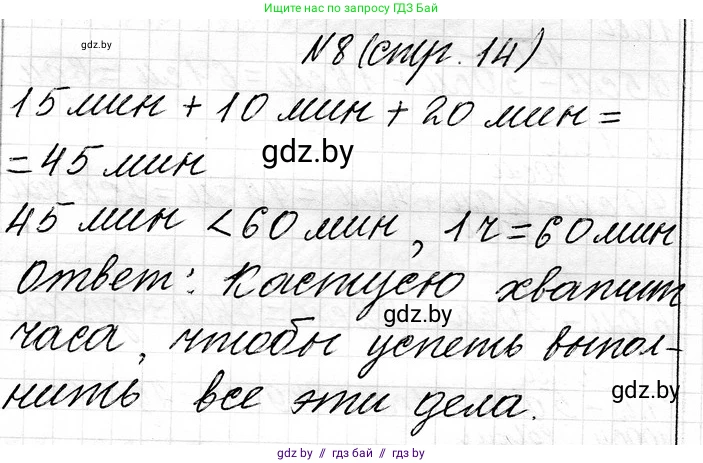 Ищите нас по запросу ГДЗ Бай
gdz.by
№8 (стр. 14)
15 мин + 10 мин + 20 мин =
= 45 мин
gdz.by
45 мин < 60 мин, 1 ч = 60 мин
Ответ: Кастусю хватит
gdz.by
часа, чтобы успеть выпол-
нить все эти дела.
gdz.by
gdz.by // гдз бай // gdz.by